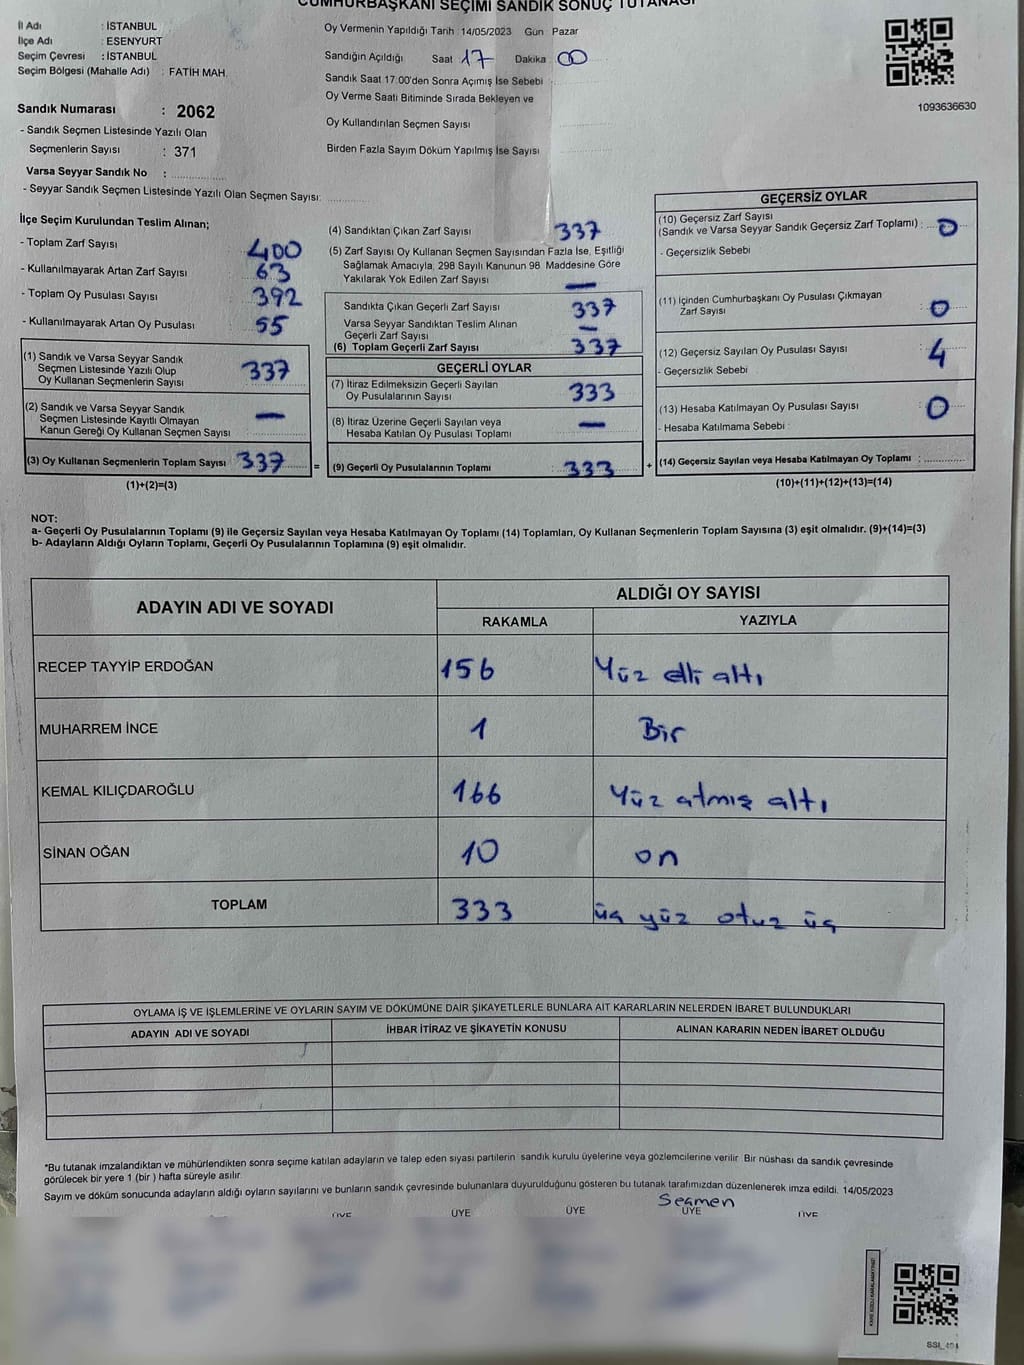 CUMHURBAŞKANI SEÇİMİ SANDIK SONUÇ TUTANAĞI
İl Adı : İSTANBUL
İlçe Adı : ESENYURT
Seçim Çevresi : İSTANBUL
Seçim Bölgesi (Mahalle Adı) : FATİH MAH.
Sandık Numarası : 2062
- Sandık Seçmen Listesinde Yazılı Olan
Seçmenlerin Sayısı : 371
Varsa Seyyar Sandık No :
- Seyyar Sandık Seçmen Listesinde Yazılı Olan Seçmen Sayısı:
Oy Vermenin Yapıldığı Tarih : 14/05/2023 Gün Pazar
Sandığın Açıldığı Saat 17 Dakika : 00
Sandık Saat 17:00'den Sonra Açımış İse Sebebi
Oy Verme Saati Bitiminde Sırada Bekleyen ve
Oy Kullandırılan Seçmen Sayısı
Birden Fazla Sayım Döküm Yapılmış İse Sayısı
1093636630
İlçe Seçim Kurulundan Teslim Alınan;
- Toplam Zarf Sayısı 400
- Kullanılmayarak Artan Zarf Sayısı 63
- Toplam Oy Pusulası Sayısı 392
- Kullanılmayarak Artan Oy Pusulası 55
(1) Sandık ve Varsa Seyyar Sandık
Seçmen Listesinde Yazılı Olup
Oy Kullanan Seçmenlerin Sayısı 337
(2) Sandık ve Varsa Seyyar Sandık
Seçmen Listesinde Kayıtlı Olmayan
Kanun Gereği Oy Kullanan Seçmen Sayısı —
(3) Oy Kullanan Seçmenlerin Toplam Sayısı 337 =
(1)+(2)=(3)
(4) Sandıktan Çıkan Zarf Sayısı 337
(5) Zarf Sayısı Oy Kullanan Seçmen Sayısından Fazla İse, Eşitliği
Sağlamak Amacıyla, 298 Sayılı Kanunun 98. Maddesine Göre
Yakılarak Yok Edilen Zarf Sayısı —
Sandıkta Çıkan Geçerli Zarf Sayısı 337
Varsa Seyyar Sandıktan Teslim Alınan
Geçerli Zarf Sayısı —
(6) Toplam Geçerli Zarf Sayısı 337
GEÇERLİ OYLAR
(7) İtiraz Edilmeksizin Geçerli Sayılan
Oy Pusulalarının Sayısı 333
(8) İtiraz Üzerine Geçerli Sayılan veya
Hesaba Katılan Oy Pusulası Toplamı —
(9) Geçerli Oy Pusulalarının Toplamı : 333 +
GEÇERSİZ OYLAR
(10) Geçersiz Zarf Sayısı
(Sandık ve Varsa Seyyar Sandık Geçersiz Zarf Toplamı) : 0
- Geçersizlik Sebebi
(11) İçinden Cumhurbaşkanı Oy Pusulası Çıkmayan
Zarf Sayısı 0
(12) Geçersiz Sayılan Oy Pusulası Sayısı 4
- Geçersizlik Sebebi
(13) Hesaba Katılmayan Oy Pusulası Sayısı 0
- Hesaba Katılmama Sebebi :
(14) Geçersiz Sayılan veya Hesaba Katılmayan Oy Toplamı :
(10)+(11)+(12)+(13)=(14)
NOT:
a- Geçerli Oy Pusulalarının Toplamı (9) ile Geçersiz Sayılan veya Hesaba Katılmayan Oy Toplamı (14) Toplamları, Oy Kullanan Seçmenlerin Toplam Sayısına (3) eşit olmalıdır. (9)+(14)=(3)
b- Adayların Aldığı Oyların Toplamı, Geçerli Oy Pusulalarının Toplamına (9) eşit olmalıdır.
ADAYIN ADI VE SOYADI ALDIĞI OY SAYISI
RAKAMLA YAZIYLA
RECEP TAYYİP ERDOĞAN 156 Yüz elli altı
MUHARREM İNCE 1 Bir
KEMAL KILIÇDAROĞLU 166 Yüz atmış altı
SİNAN OĞAN 10 on
TOPLAM 333 üç yüz otuz üç
OYLAMA İŞ VE İŞLEMLERİNE VE OYLARIN SAYIM VE DÖKÜMÜNE DAİR ŞİKAYETLERLE BUNLARA AİT KARARLARIN NELERDEN İBARET BULUNDUKLARI
ADAYIN ADI VE SOYADI İHBAR İTİRAZ VE ŞİKAYETİN KONUSU ALINAN KARARIN NEDEN İBARET OLDUĞU
*Bu tutanak imzalandıktan ve mühürlendikten sonra seçime katılan adayların ve talep eden siyasi partilerin sandık kurulu üyelerine veya gözlemcilerine verilir. Bir nüshası da sandık çevresinde
görülecek bir yere 1 (bir) hafta süreyle asılır.
Sayım ve döküm sonucunda adayların aldığı oyların sayılarını ve bunların sandık çevresinde bulunanlara duyurulduğunu gösteren bu tutanak tarafımızdan düzenlenerek imza edildi. 14/05/2023
Seçmen
ÜYE ÜYE ÜYE ÜYE ÜYE